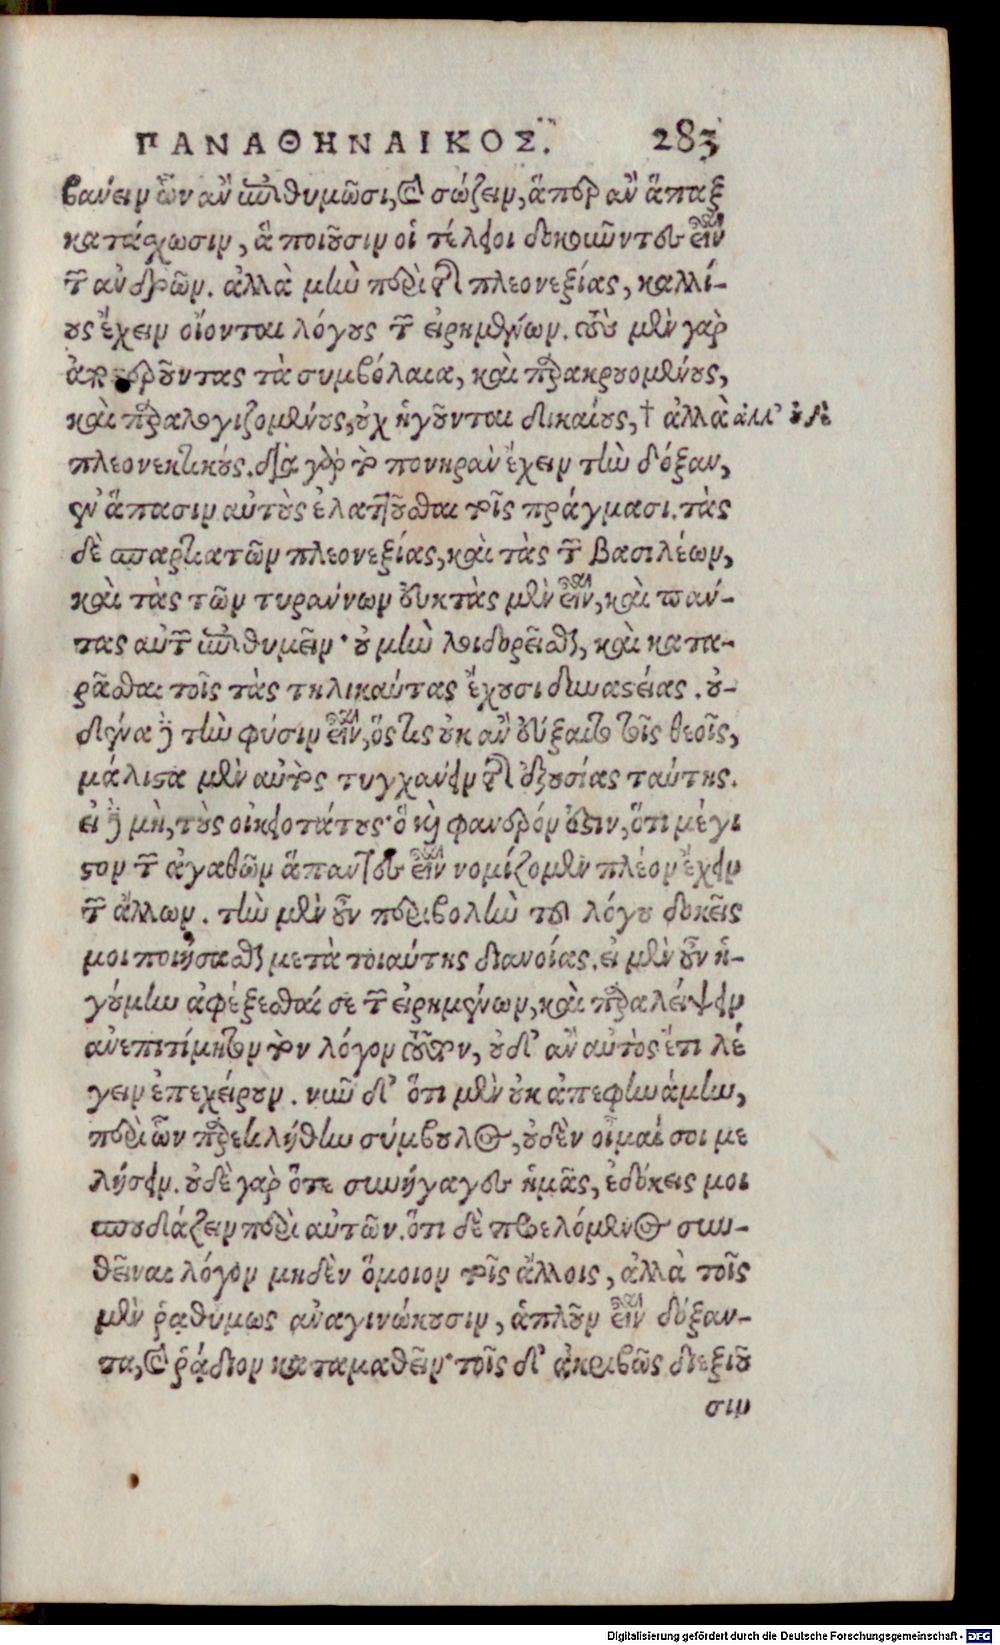 ΠΑΝΑΘΗΝΑΙΚΟΣ. 283
βανειν ὧν ἂν ἐπιθυμῶσι, καὶ σώζειν, ἅπερ ἂν ἅπαξ
κατάσχωσιν, ἃ ποιοῦσιν οἱ τέλειοι δοκοῦντες εἶναι
τῶν ἀνδρῶν. ἀλλὰ μὴν περὶ τῆς πλεονεξίας, καλλί-
ους ἔχειν οἴονται λόγους τῶν εἰρημένων. τοὺς μὲν γὰρ
ἀποστεροῦντας τὰ συμβόλαια, καὶ παρακρουομένους,
καὶ παραλογιζομένους, οὐχ ἡγοῦνται δικαίως, † ἀλλὰ ἀλλ' οὐδὲ
πλεονεκτικούς. διὰ γὰρ τὸ πονηρὰν ἔχειν τὴν δόξαν,
ἐν ἅπασιν αὐτοὺς ἐλαττοῦσθαι τοῖς πράγμασι. τὰς
δὲ σπαρτιατῶν πλεονεξίας, καὶ τὰς τῶν βασιλέων,
καὶ τὰς τῶν τυράννων εὐκτὰς μὲν εἶναι, καὶ πάν-
τας αὐτῶν ἐπιθυμεῖν· οὐ μὴν λοιδορεῖσθαι, καὶ κατα-
ρᾶσθαι τοῖς τὰς τηλικαύτας ἔχουσι δυναστείας. οὐ-
δένα δὲ τὴν φύσιν εἶναι, ὅστις οὐκ ἂν εὔξαιτο τοῖς θεοῖς,
μάλιστα μὲν αὐτὸς τυγχάνειν τῆς ἐξουσίας ταύτης.
εἰ δὲ μὴ, τοὺς οἰκειοτάτους· ὃ καὶ φανερόν ἐστιν, ὅτι μέγι
στον τῶν ἀγαθῶν ἅπαντες εἶναι νομίζομεν πλέον ἔχειν
τῶν ἄλλων. τὴν μὲν οὖν περιβολὴν τοῦ λόγου δοκεῖς
μοι ποιήσασθαι μετὰ τοιαύτης διανοίας. εἰ μὲν οὖν ἡ-
γούμην ἀφέξεσθαί σε τῶν εἰρημένων, καὶ παραλείψειν
ἀνεπιτίμητον τὸν λόγον τοῦτον, οὐδ' ἂν αὐτὸς ἔτι λέ
γειν ἐπεχείρουν. νῦν δ' ὅτι μὲν οὐκ ἀπεφηνάμην,
περὶ ὧν παρεκλήθην σύμβουλος, οὐδὲν οἶμαί σοι με
λήσειν. οὐδὲ γὰρ ὅτε συνήγαγες ἡμᾶς, ἐδόκεις μοι
σπουδάζειν περὶ αὐτῶν. ὅτι δὲ προελόμενος συν-
θεῖναι λόγον μηδὲν ὅμοιον τοῖς ἄλλοις, ἀλλὰ τοῖς
μὲν ῥᾳθύμως ἀναγινώσκουσιν, ἁπλοῦν εἶναι δόξαν-
τα, καὶ ῥᾴδιον καταμαθεῖν· τοῖς δ' ἀκριβῶς διεξιοῦ
σιν
Digitalisierung gefördert durch die Deutsche Forschungsgemeinschaft - DFG